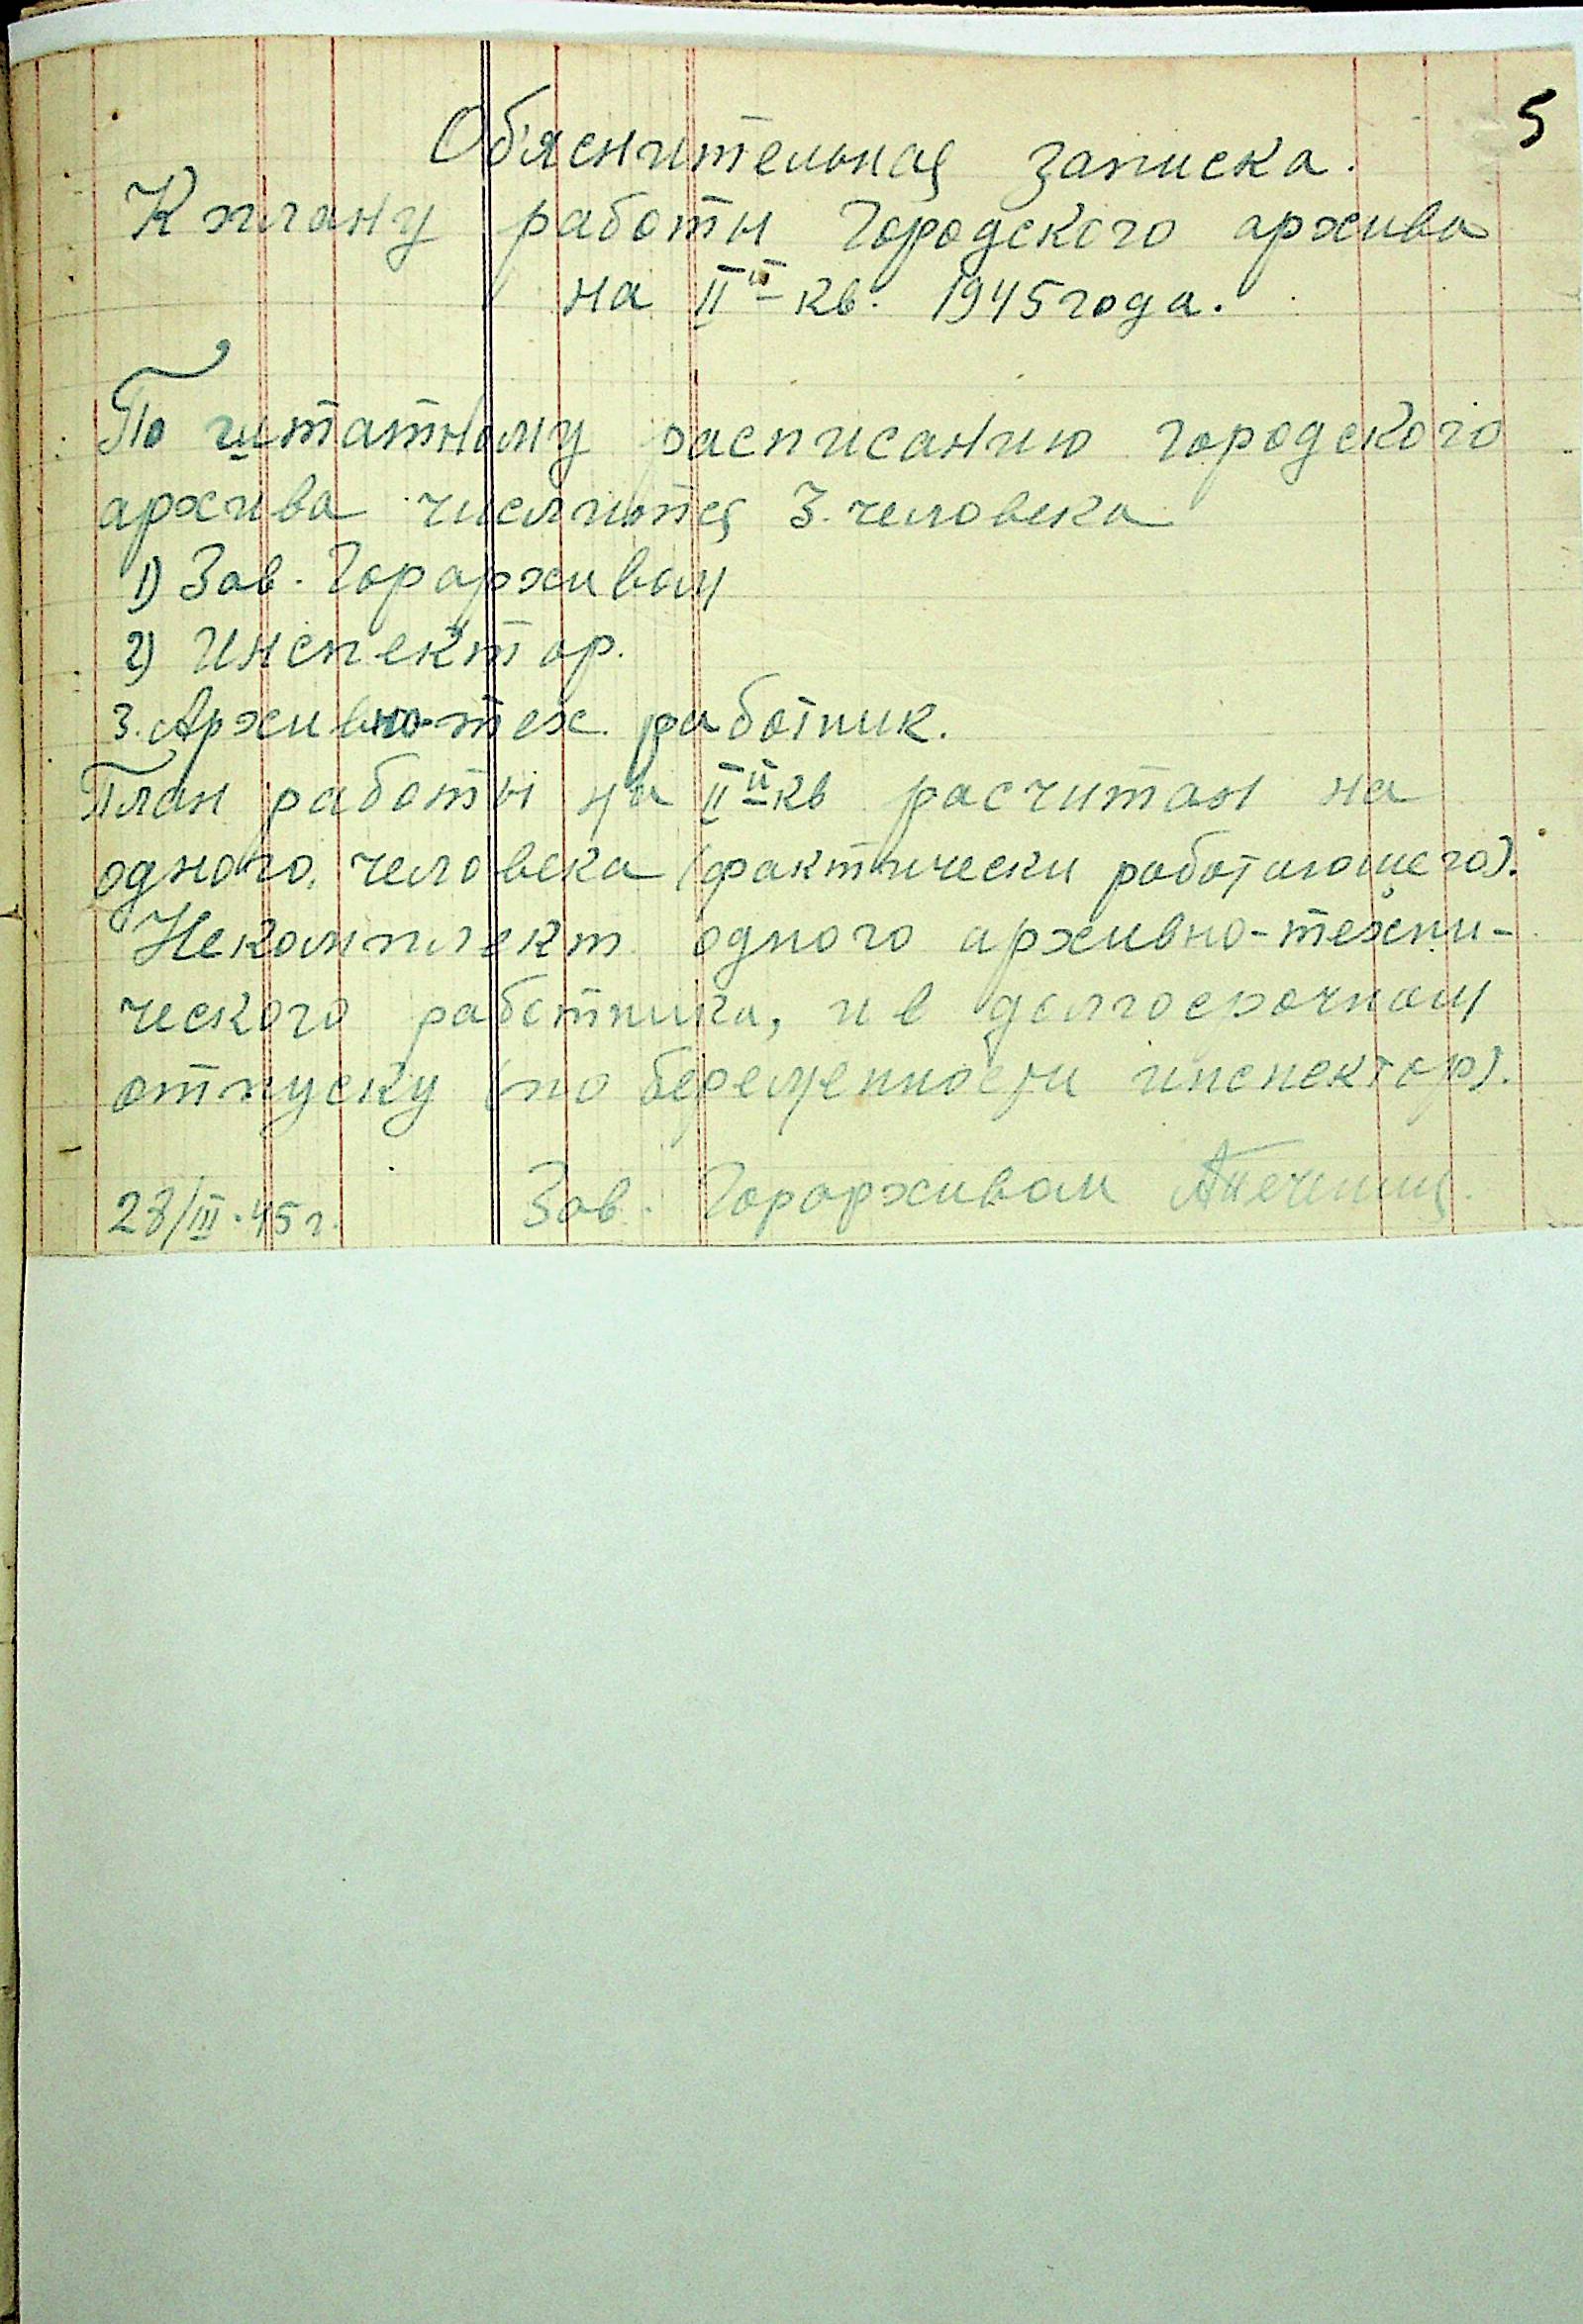 5
Об'яснительная записка.
К плану работы Городского архива
на II й кв. 1945 года.
По штатному расписанию городского
архива числится 3. человека
1) Зав. Горархивом
2) Инспектор.
3. Архивно-тех. работник.
План работы на II й кв расчитан на
одного, человека (фактически работающего).
Некомплект одного архивно-техни-
ческого работника, и в долгосрочном
отпуску (по беременности инспектор).
28/III-45 г. Зав. Горархивом